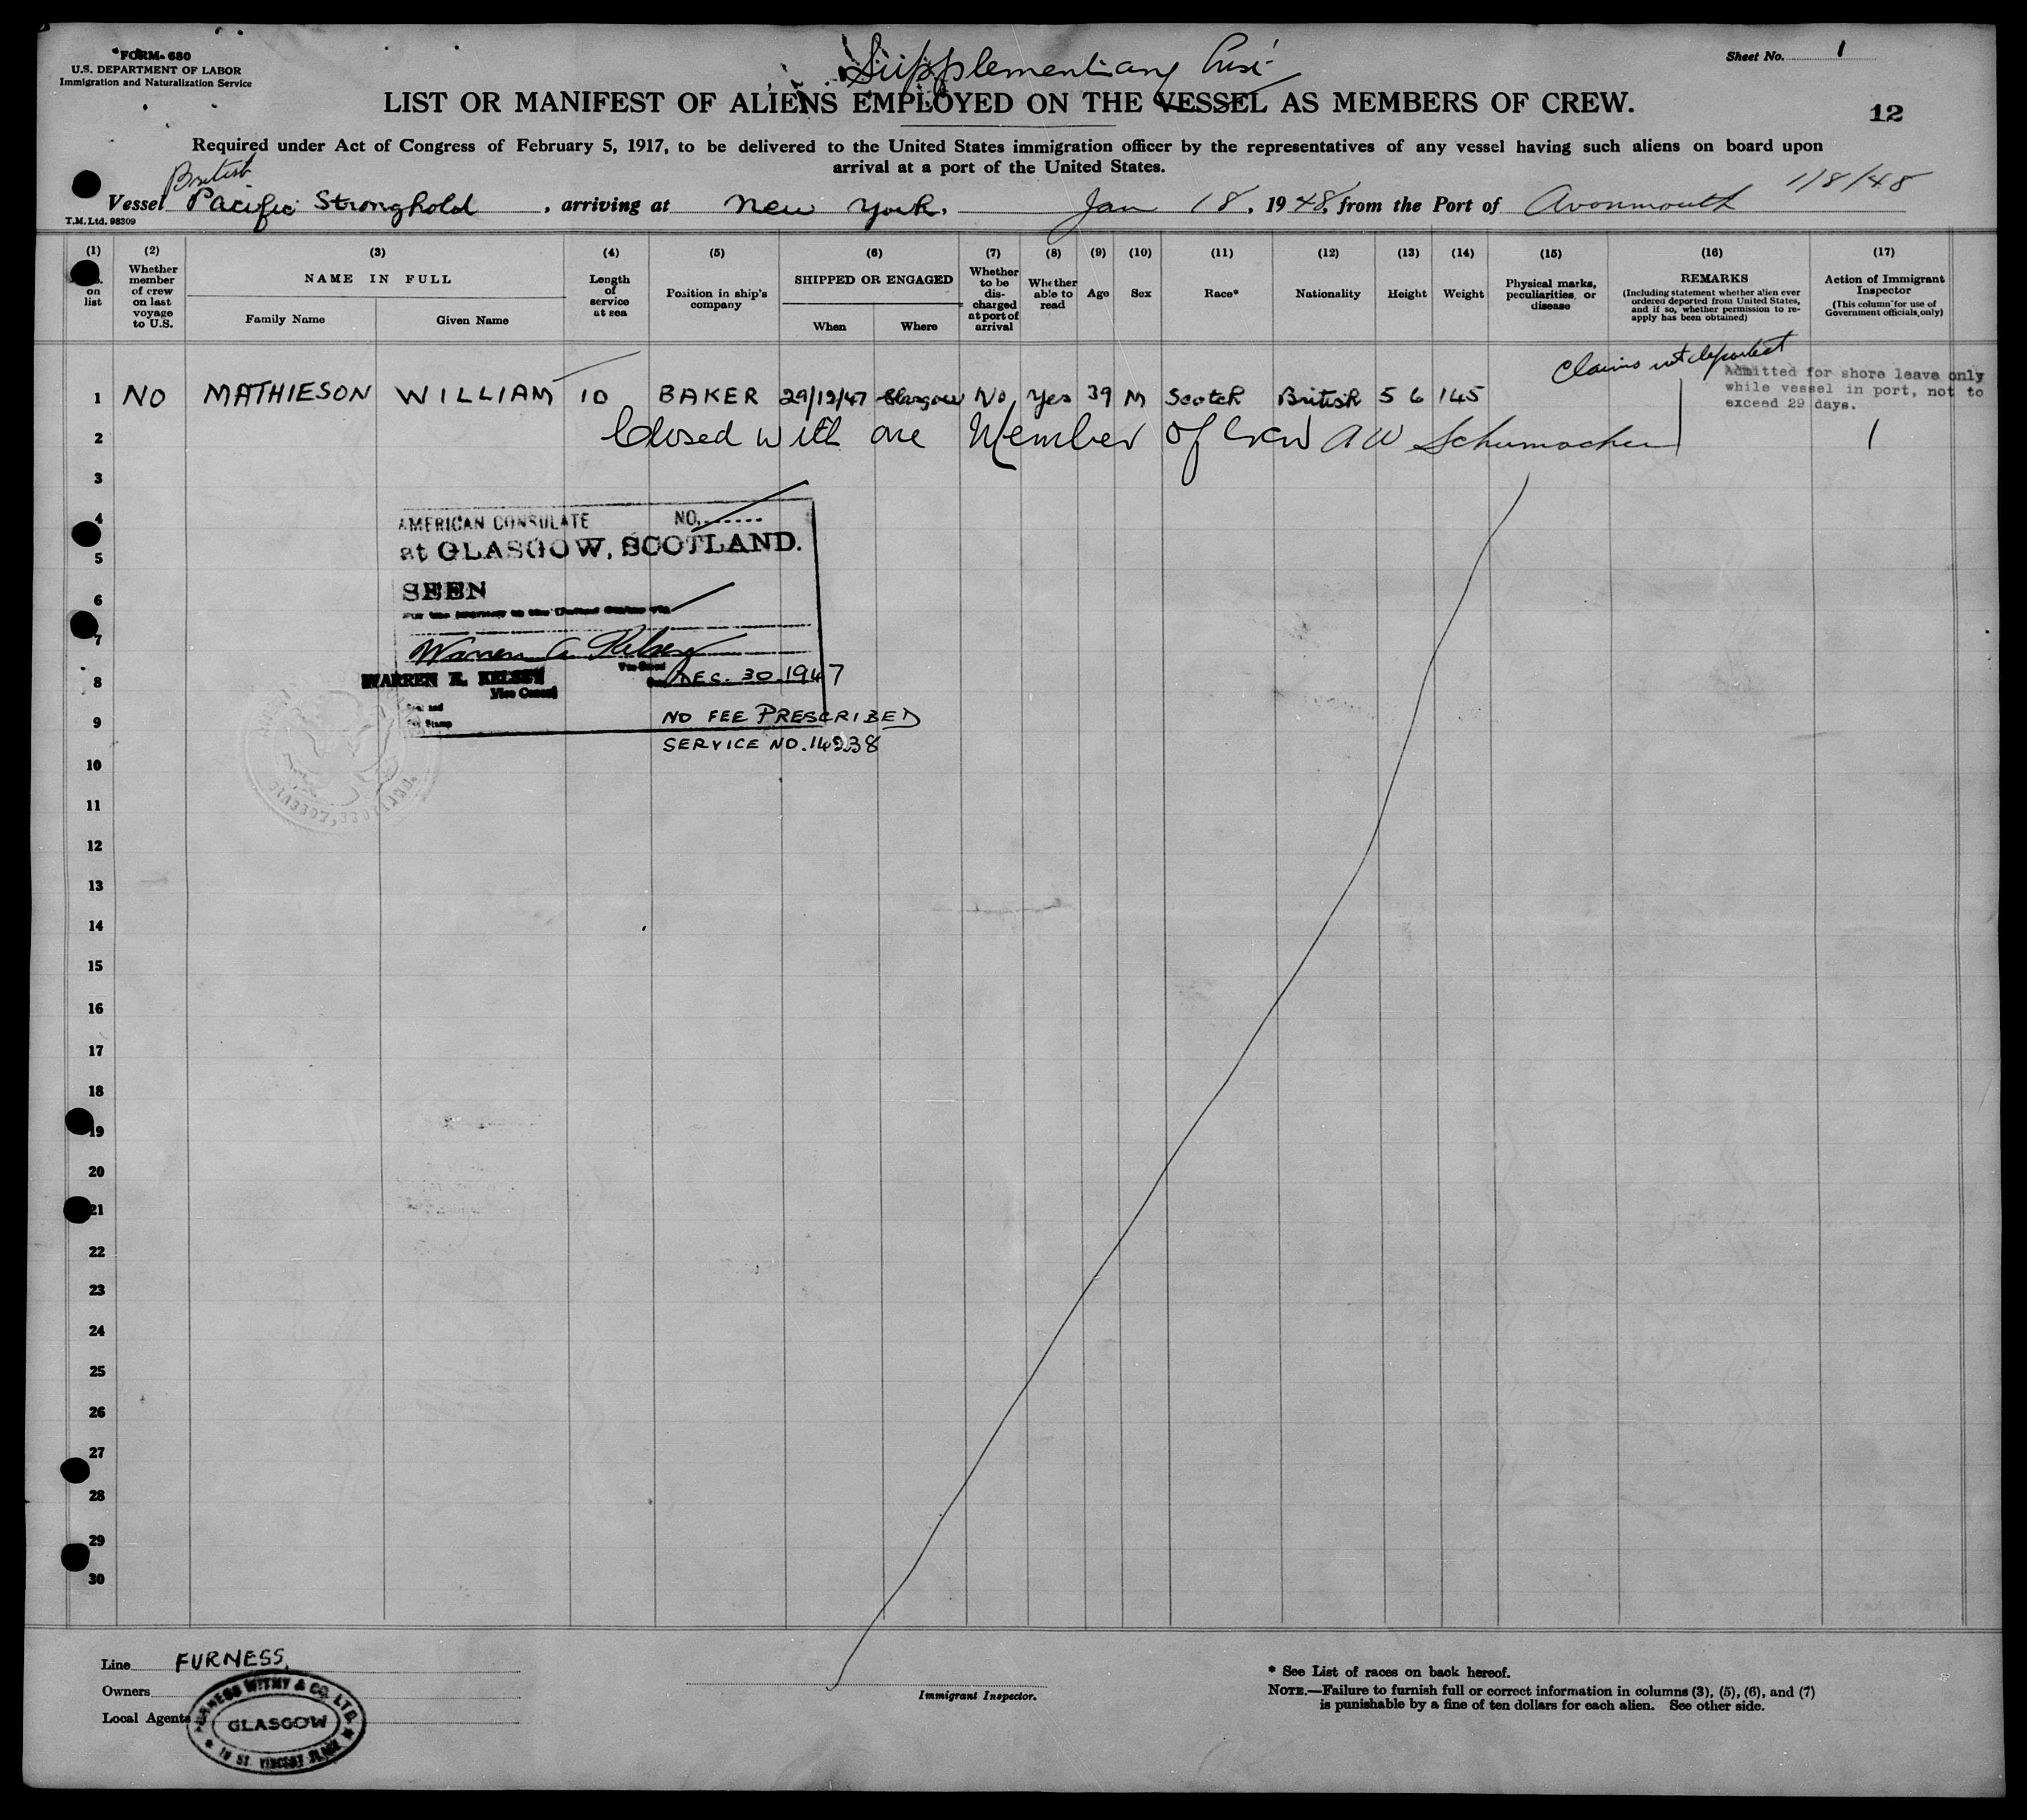 FORM 680
U.S. DEPARTMENT OF LABOR
Immigration and Naturalization Service
Supplementary
Sheet No. 1
LIST OR MANIFEST OF ALIENS EMPLOYED ON THE VESSEL AS MEMBERS OF CREW.
12
Required under Act of Congress of February 5, 1917, to be delivered to the United States immigration officer by the representatives of any vessel having such aliens on board upon
arrival at a port of the United States.
British
1/8/48
Vessel Pacific Stronghold, arriving at New York, Jan 18, 1948, from the Port of Avonmouth
T.M.Ltd. 98309
(1) (2) (3) (4) (5) (6) (7) (8) (9) (10) (11) (12) (13) (14) (15) (16) (17)
on list
Whether member of crew on last voyage to U.S.
NAME IN FULL
Family Name
Given Name
Length of service at sea
Position in ship's company
SHIPPED OR ENGAGED
When
Where
Whether to be discharged at port of arrival
Whether able to read
Age
Sex
Race*
Nationality
Height
Weight
Physical marks, peculiarities, or disease
REMARKS
(Including statement whether alien ever ordered deported from United States, and if so, whether permission to re-apply has been obtained)
Action of Immigrant Inspector
(This column for use of Government officials only)
Claims not deported
Admitted for shore leave only
while vessel in port, not to
exceed 29 days.
1 NO MATHIESON WILLIAM 10 BAKER 29/12/47 Glasgow No Yes 39 M Scotch British 5 6 145
2 Closed with one Member of Crew A W Schumacher 1
3
4
5
6
7
8
9
10
11
12
13
14
15
16
17
18
19
20
21
22
23
24
25
26
27
28
29
30
AMERICAN CONSULATE NO.
at GLASGOW, SCOTLAND.
SEEN
Warren A Kelsey
WARREN A. KELSEY
Vice Consul
DEC. 30. 1947
NO FEE PRESCRIBED
SERVICE NO. 14938
Line FURNESS,
Owners
Local Agents
FURNESS WITHY & CO. LTD.
GLASGOW
19 ST. VINCENT PLACE
Immigrant Inspector.
* See List of races on back hereof.
NOTE.—Failure to furnish full or correct information in columns (3), (5), (6), and (7)
is punishable by a fine of ten dollars for each alien. See other side.